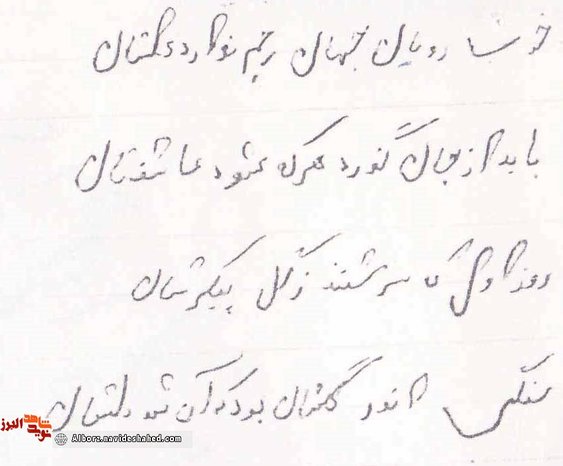 خوب رویان جهان رحم ندارد دلشان
باید از جان گذرد هرکه شود عاشقشان
روز اول که سرشتند ز گل پیکرشان
سنگی اندر گلشان بود که آن شد دلشان
نوید شاهد البرز
Albors.navideshahed.com